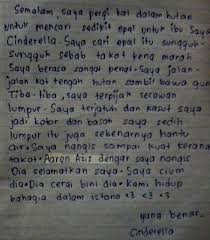 Semalam, saya pergi kat dalam hutan
untuk mencari sedikit epal untuk ibu saya
Cinderella. Saya cari epal itu sungguh-
sungguh sebab takut kena marah
Saya berasa sangat penat. Saya jalan-
jalan kat tengah hutan sambil bawa gun
Tiba-tiba, saya terpijak secawan
lumpur. Saya terjatuh dan kasut saya
jadi kotor dan basah saya sedih
lumpur itu juga sebenarnya hantu
air. Saya nangis sampai kuat kerana
takot. Aaron Aziz dengar saya nangis
Dia selamatkan saya. Saya cium
dia. Dia cerai bini dia. Kami hidup
bahagia dalam istana <3 <3 <3
yang benar,
Cinderella